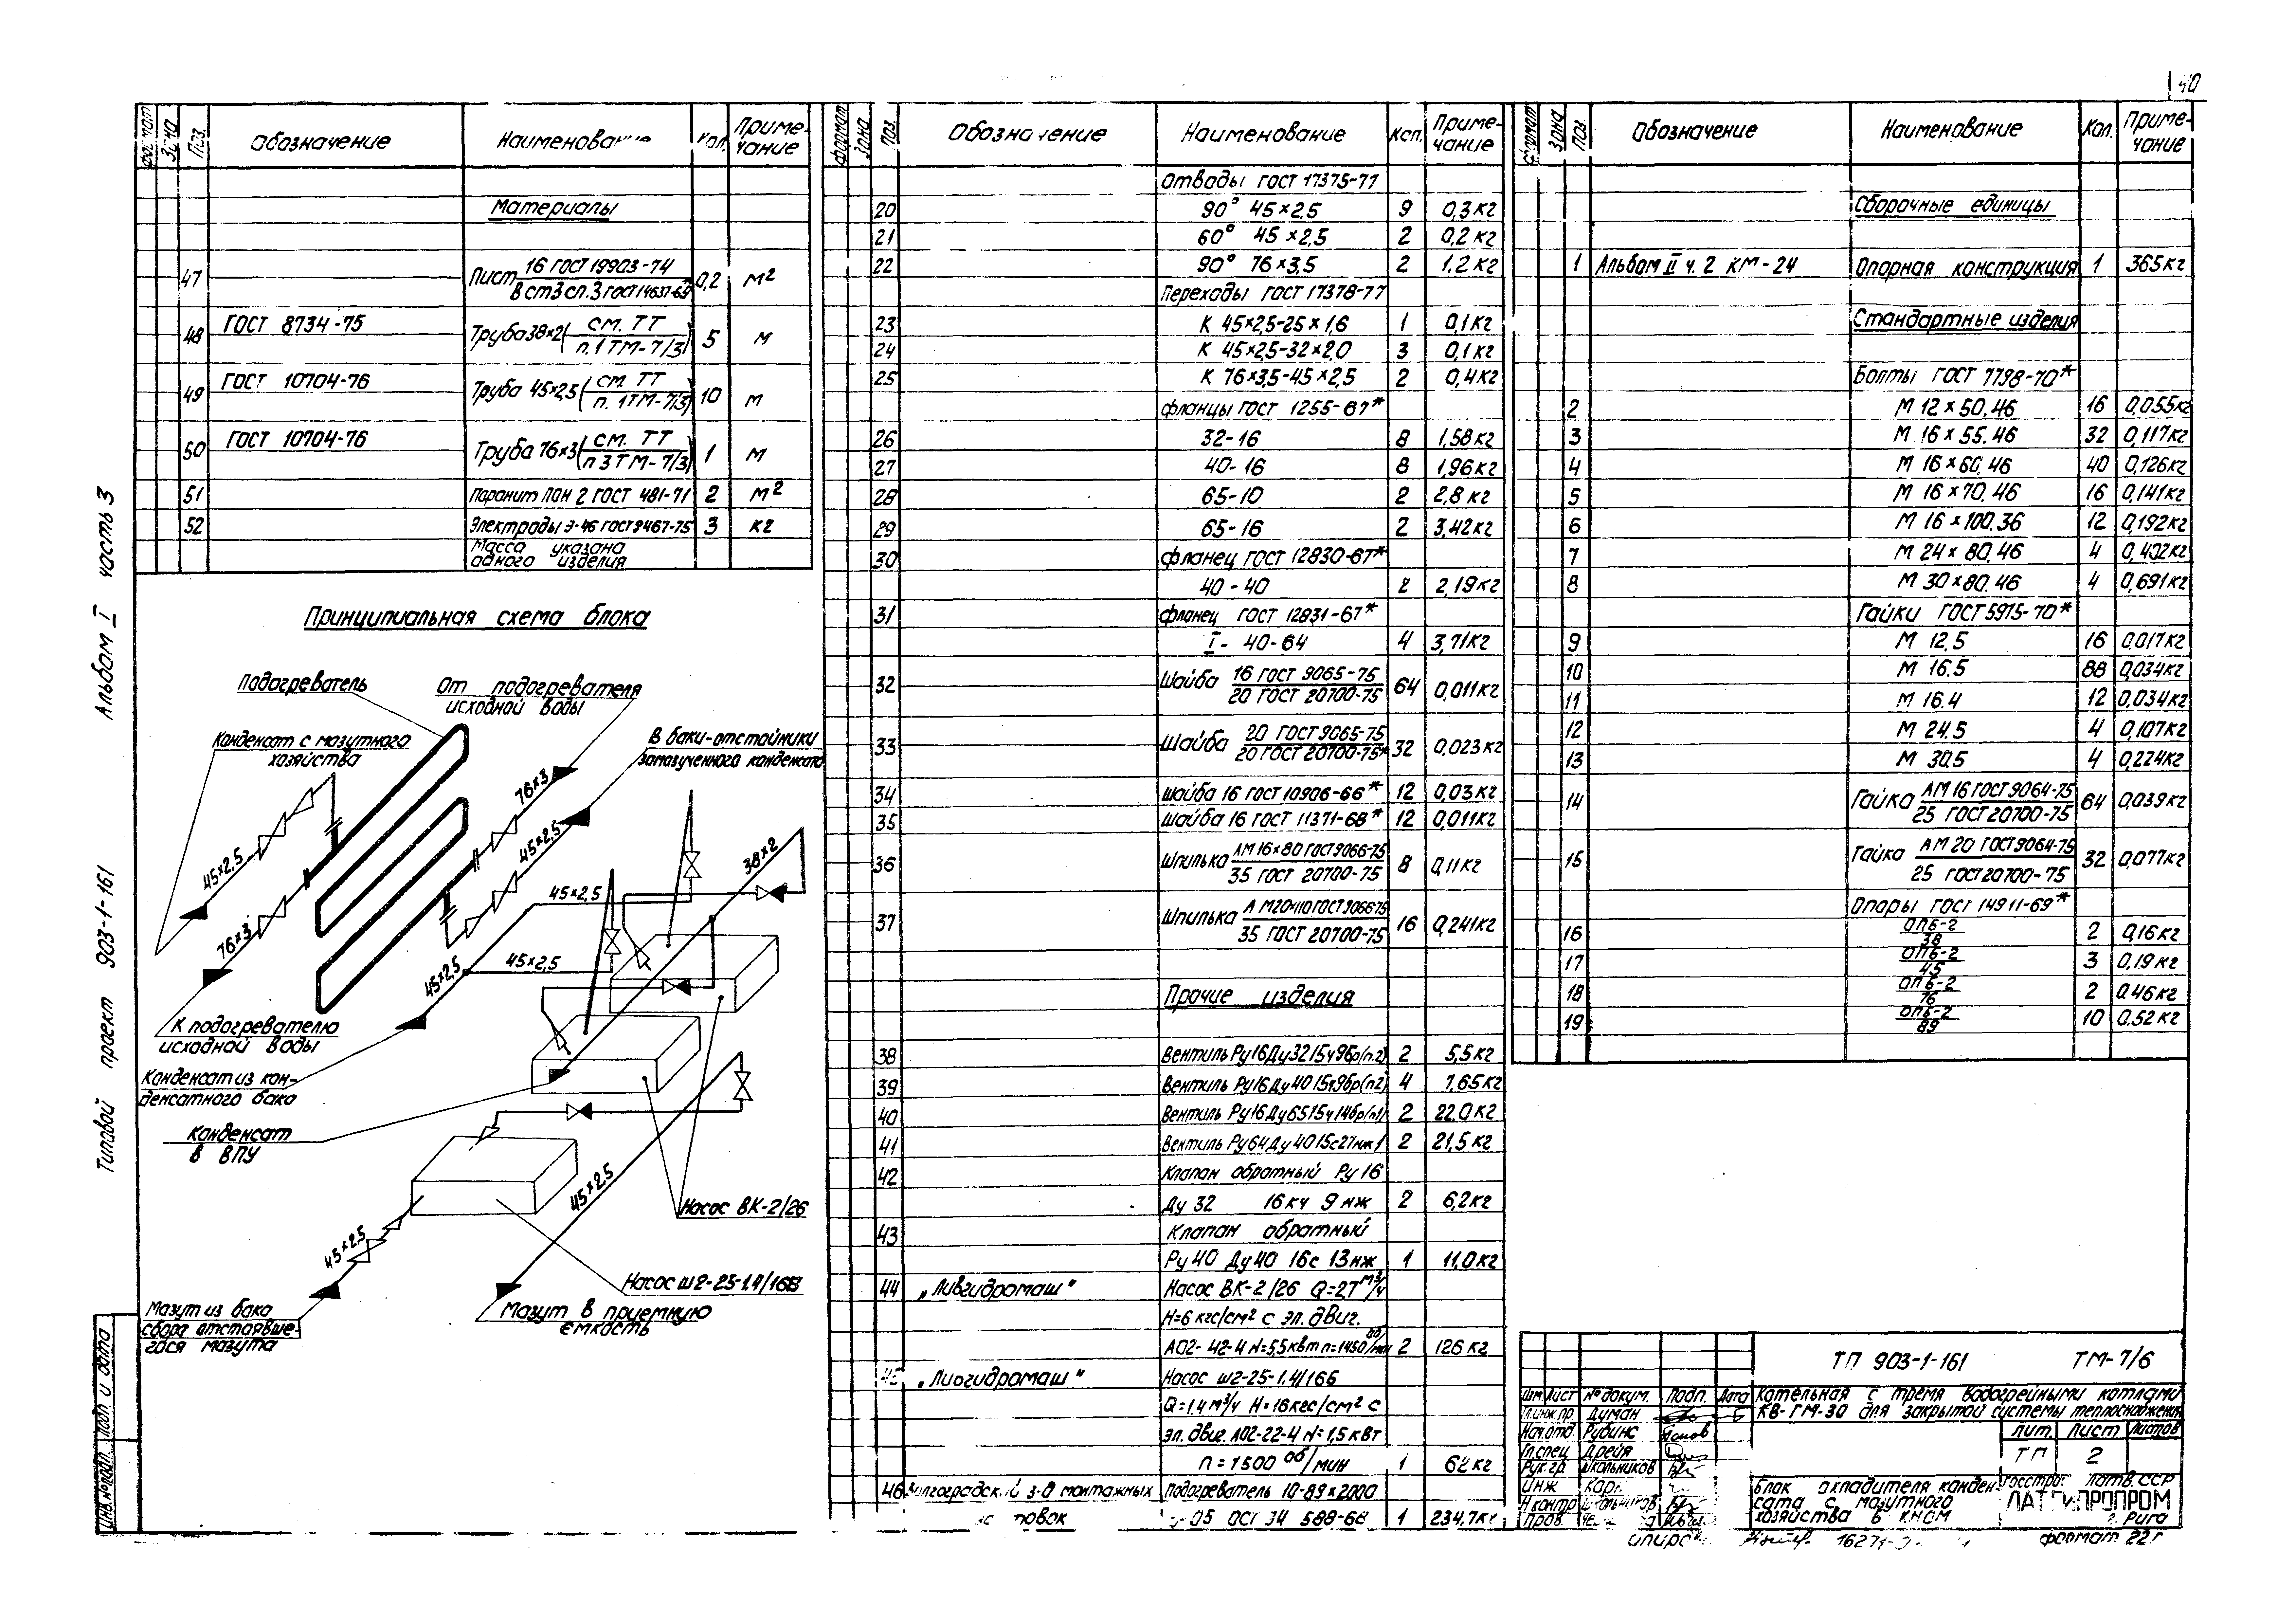 40
Формат Зона Поз. Обозначение Наименование Кол. Приме-
чание
Материалы
47 Лист 16 ГОСТ 19903-74 0,2 м²
В ст3 сп.3 ГОСТ 14637-69*
48 ГОСТ 8734-75 Труба 38×2 (см. ТТ 5 м
п.1 ТМ-7/3)
49 ГОСТ 10704-76 Труба 45×2,5 (см. ТТ 10 м
п. 1 ТМ-7/3)
50 ГОСТ 10704-76 Труба 76×3 (см. ТТ 1 м
п 3 ТМ-7/3)
51 Паронит ПОН 2 ГОСТ 481-71 2 м²
52 Электроды Э-46 ГОСТ 9467-75 3 кг
Масса указана
одного изделия
Принципиальная схема блока
Подогреватель
От подогревателя
исходной воды
Конденсат с мазутного
хозяйства
В баки-отстойники
замазученного конденсата
76×3
45×2,5
45×2,5
76×3
38×2
45×2,5
45×2,5
45×2,5
К подогревателю
исходной воды
Конденсат из кон-
денсатного бака
Конденсат
в ВПУ
Насос ВК-2/26
45×2,5
45×2,5
Насос ш2-25-1.4/16Б
Мазут из бака
сбора отстоявше-
гося мазута
Мазут в приемную
емкость
Формат Зона Поз. Обозначение Наименование Кол. Приме-
чание
Отводы ГОСТ 17375-77
20 90° 45×2,5 9 0,3 кг
21 60° 45×2,5 2 0,2 кг
22 90° 76×3,5 2 1.2 кг
Переходы ГОСТ 17378-77
23 К 45×2,5-25×1,6 1 0,1 кг
24 К 45×2,5-32×2,0 3 0,1 кг
25 К 76×3,5-45×2,5 2 0,4 кг
Фланцы ГОСТ 1255-67*
26 32-16 8 1,58 кг
27 40-16 8 1,96 кг
28 65-10 2 2,8 кг
29 65-16 2 3,42 кг
30 Фланец ГОСТ 12830-67*
40-40 2 2,19 кг
31 Фланец ГОСТ 12831-67*
I- 40-64 4 3,71 кг
32 Шайба 16 ГОСТ 9065-75 64 0,011 кг
20 ГОСТ 20700-75
33 Шайба 20 ГОСТ 9065-75 32 0,023 кг
20 ГОСТ 20700-75*
34 Шайба 16 ГОСТ 10906-66* 12 0,03 кг
35 Шайба 16 ГОСТ 11371-68* 12 0,011 кг
36 Шпилька АМ 16×80 ГОСТ 9066-75 8 0,11 кг
35 ГОСТ 20700-75
37 Шпилька А М20×110 ГОСТ 9066-75 16 0,241 кг
35 ГОСТ 20700-75
Прочие изделия
38 Вентиль Ру16 Ду32 15ч9бр(п.2) 2 5,5 кг
39 Вентиль Ру16 Ду40 15ч9бр(п2) 4 7,65 кг
40 Вентиль Ру16 Ду65 15ч14бр(п1) 2 22.0 кг
41 Вентиль Ру64 Ду40 15с27нж1 2 21,5 кг
42 Клапан обратный Ру 16
Ду 32 16кч 9 нж 2 6,2 кг
43 Клапан обратный
Ру 40 Ду 40 16с 13 нж 1 11,0 кг
44 „Ливгидромаш" Насос ВК-2/26 Q=2,7 м³/ч
Н=6 кгс/см² с эл. двиг.
АО2-42-4 N=5,5 квт n=1450 об/мин 2 126 кг
45 „Ливгидромаш" Насос ш2-25-1.4/16Б
Q=1,4 м³/ч Н=16 кгс/см² с
эл. двиг. АО2-22-4 N=1,5 квт
n=1500 об/мин 1 62 кг
46 Волгоградский з-д монтажных Подогреватель 10-89×2000
ОСТ 34 588-68 1 234,7 кг
Формат Зона Поз. Обозначение Наименование Кол. Приме-
чание
Сборочные единицы
1 Альбом II ч. 2 КМ-24 Опорная конструкция 1 365 кг
Стандартные изделия
Болты ГОСТ 7798-70*
2 М 12×50.46 16 0,055 кг
3 М 16×55.46 32 0,117 кг
4 М 16×60.46 40 0,126 кг
5 М 16×70.46 16 0,141 кг
6 М 16×100.36 12 0,192 кг
7 М 24×80.46 4 0,402 кг
8 М 30×80.46 4 0,691 кг
Гайки ГОСТ 5915-70*
9 М 12.5 16 0,017 кг
10 М 16.5 88 0,034 кг
11 М 16.4 12 0,034 кг
12 М 24.5 4 0,107 кг
13 М 30.5 4 0,224 кг
14 Гайка АМ 16 ГОСТ 9064-75 64 0,039 кг
25 ГОСТ 20700-75
15 Гайка АМ 20 ГОСТ 9064-75 32 0,077 кг
25 ГОСТ 20700-75
Опоры ГОСТ 14911-69*
16 ОПБ-2 2 0,16 кг
38
17 ОПБ-2 3 0,19 кг
45
18 ОПБ-2 2 0.46 кг
76
19 ОПБ-2 10 0.52 кг
89
ТП 903-1-161 ТМ-7/6
Изм. Лист № докум. Подп. Дата
Котельная с тремя водогрейными котлами
КВ-ГМ-30 для закрытой системы теплоснабжения
Гл.инж.пр. Думан
Нач.отд. Рудинс
Гл.спец. Дрейя
Рук.гр. Школьников
Инж
Н.контр Школьников
Пров.
Лит. Лист Листов
ТП 2
Блок охладителя конден-
сата с мазутного
хозяйства в КНОМ
Госстрой Латв.ССР
ЛАТГИПРОПРОМ
г. Рига
Формат 22 г
Альбом I часть 3
Типовой проект 903-1-161
Инв.№ подл. Подп. и дата